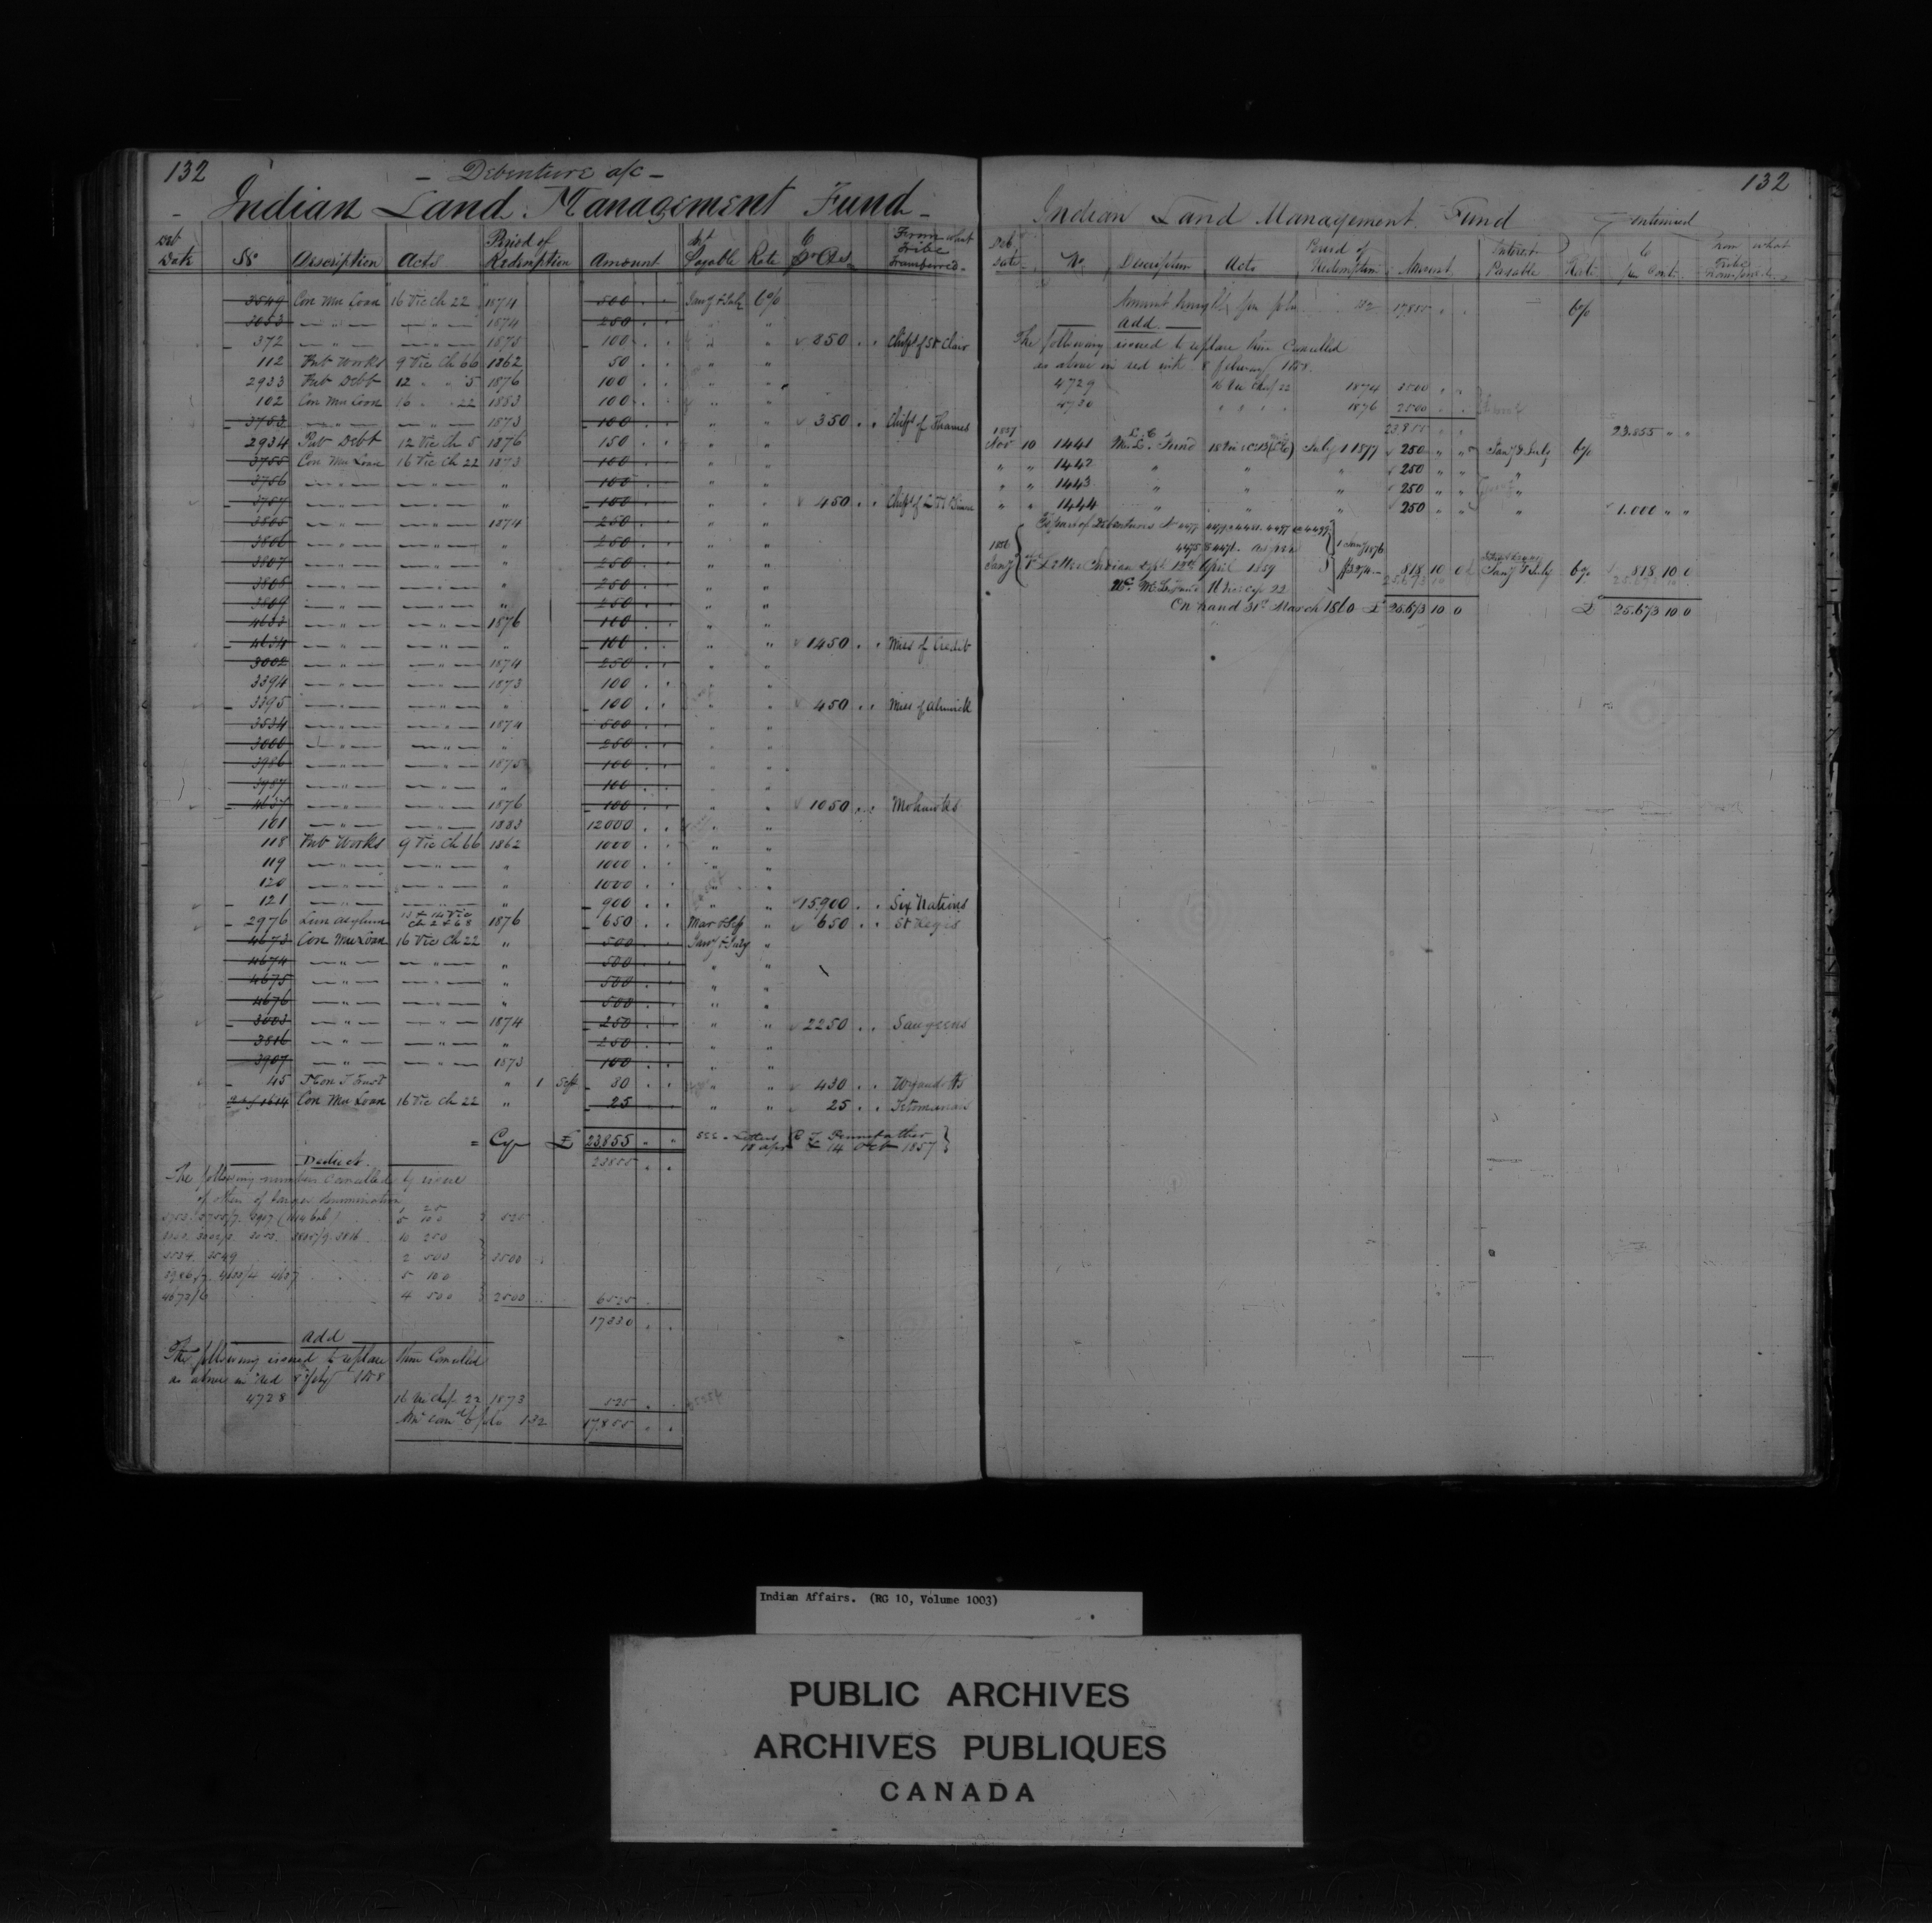 132
— Debenture a/c —
— Indian Land Management Fund —
Deb Date No Description Acts Period of Redemption Amount Int Payable Rate 6 Pr Ct From what Tribe Transferred
3549 Con Mu Loan 16 Vic Ch 22 1874 500 . . Jany & July 6%
3053 — " — — " — 1874 250 . . " "
372 — " — — " — 1875 100 . . " " 850 . . Chip's of St Clair
112 Pub Works 9 Vic Ch 66 1862 50 . . " "
2933 Pub Debt 12 " " 5 1876 100 . . " "
102 Con Mu Loan 16 " " 22 1883 100 . . " "
3753 — " — — " — 1873 100 . . " " 350 . . Chip's of Thames
2934 Pub Debt 12 Vic Ch 5 1876 150 . . " "
3755 Con Mu Loan 16 Vic Ch 22 1873 100 . . " "
3756 — " — — " — " 100 . . " "
3757 — " — — " — " 100 . . " " 450 . . Chip's of
3805 — " — — " — 1874 250 . . " "
3806 — " — — " — " 250 . . " "
3807 — " — — " — " 250 . . " "
3808 — " — — " — " 250 . . " "
3809 — " — — " — " 250 . . " "
4633 — " — — " — 1876 100 . . " "
4634 — " — — " — " 100 . . " " 1450 . . Miss of Credit
3002 — " — — " — 1874 250 . . " "
3394 — " — — " — 1873 100 . . " "
3395 — " — — " — " 100 . . " " 450 . . Miss of Alnwick
3534 — " — — " — 1874 500 . . " "
3000 — " — — " — " 250 . . " "
3986 — " — — " — 1875 100 . . " "
3987 — " — — " — " 100 . . " "
4637 — " — — " — 1876 100 . . " " 1050 . . Mohawks
101 — " — — " — 1883 12000 . . " "
118 Pub Works 9 Vic Ch 66 1862 1000 . . " "
119 — " — — " — " 1000 . . " "
120 — " — — " — " 1000 . . " "
121 — " — — " — " 900 . . " " 15.900 . . Six Nations
2976 Lun Asylum 13 & 14 Vic Ch 2 & 68 1876 650 . . Mar & Sep " 650 . . St Regis
4673 Con Mu Loan 16 Vic Ch 22 " 500 . . Jany & July "
4674 — " — — " — " 500 . . " "
4675 — " — — " — " 500 . . " "
4676 — " — — " — " 500 . . " "
3003 — " — — " — 1874 250 . . " " 2250 . . Saugeens
3816 — " — — " — " 250 . . " "
3907 — " — — " — 1873 100 . . " "
45 " 1 Sept 80 . . " " 430 . . Wyandotts
1614 Con Mu Loan 16 Vic Ch 22 " 25 . . " " 25 . .
= Cy £ 23.855 " " see Letters R T Pennefather
18 apr & 14 Oct 1857
Deduct 23855 . .
The following number Cancelled by issue
of others of larger denomination
1 25
3753. 3755/7. 3907 5 100 525
3805/9. 3816 10 250
3534 3549 2 500 3500
3986/7 4633/4 4637 5 100
4673/6 4 500 2500 6525
17330 . .
Add
The following issued to replace them Cancelled
as above in red 8 feby 1858
4728 16 Vic Chap 22 1873 525 . .
Amt carrd to folio 132 17.855 . .
132
Indian Land Management Fund Continued
Deb Date No Description Acts Period of Redemption Amount Interest Payable Rate 6 per Cent From what Tribe Transferred
Amount brought from folio 132 17855 . . 6%
Add
The following issued to replace them Cancelled
as above in red ink 8 february 1858
4729 16 Vic Chap 22 1874 3500 " "
4730 " " " " 1876 2500 . .
23.855 . . 23.855 " "
1857
Nov 10 1441 L. C. M. L. Fund 18 Vic July 1 1877 250 " " Jany & July 6%
" " 1442 " " " 250 " " "
" " 1443 " " " 250 " " "
" " 1444 " " " 250 " " " 1.000 " "
1 Jany 1876
Jany Letter Indian Dept 12th April 1859 818 10 0 Jany & July 6% 818 10 0
25.673 10 25.673 10
On hand 31st March 1860 £ 25.673 10 0 £ 25.673 10 0
Indian Affairs. (RG 10, Volume 1003)
PUBLIC ARCHIVES
ARCHIVES PUBLIQUES
CANADA